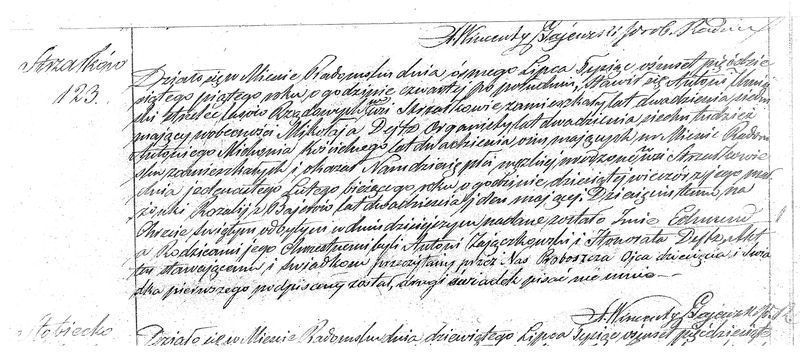 X. Wincenty Gajewski Prob. Radom
Strzałków
123.
Działo się w Mieście Radomsku dnia ósmego Lipca Tysiąc ośmset pięćdzie
siątego piątego roku o godzinie czwartej po południu, Stawił się Antoni
Strzelec lasów Rządowych we wsi Strzałkowie zamieszkały lat dwadzieścia siedm
mający w obecności Mikołaja Dytz Organisty lat dwadzieścia siedm tudzież
Antoniego Kościelnego lat dwadzieścia ośm mających w Mieście Radom
sku zamieszkałych i okazał Nam dziecię płci męzkiej urodzone we wsi Strzałkowie
dnia jedenastego Lutego bieżącego roku o godzinie dziesiątej wieczór z jego mał
żonki Rozalii z Bajerów lat dwadzieścia jeden mającej. Dziecięciu temu na
Chrzcie świętym odbytym w dniu dzisiejszym nadane zostało Imie Edmund
a Rodzicami jego Chrzestnemi byli Antoni Zajączkowski i Honorata Dytz, Akt
ten stawającemu i świadkom przeczytany przez Nas Proboszcza Ojca dziecięcia i Świa
dka pierwszego podpisany został, drugi świadek pisać nie umie.
X. Wincenty Gajewski
Stobiecko
Działo się w Mieście Radomsku dnia dziewiątego Lipca Tysiąc ośmset pięćdziesiąte